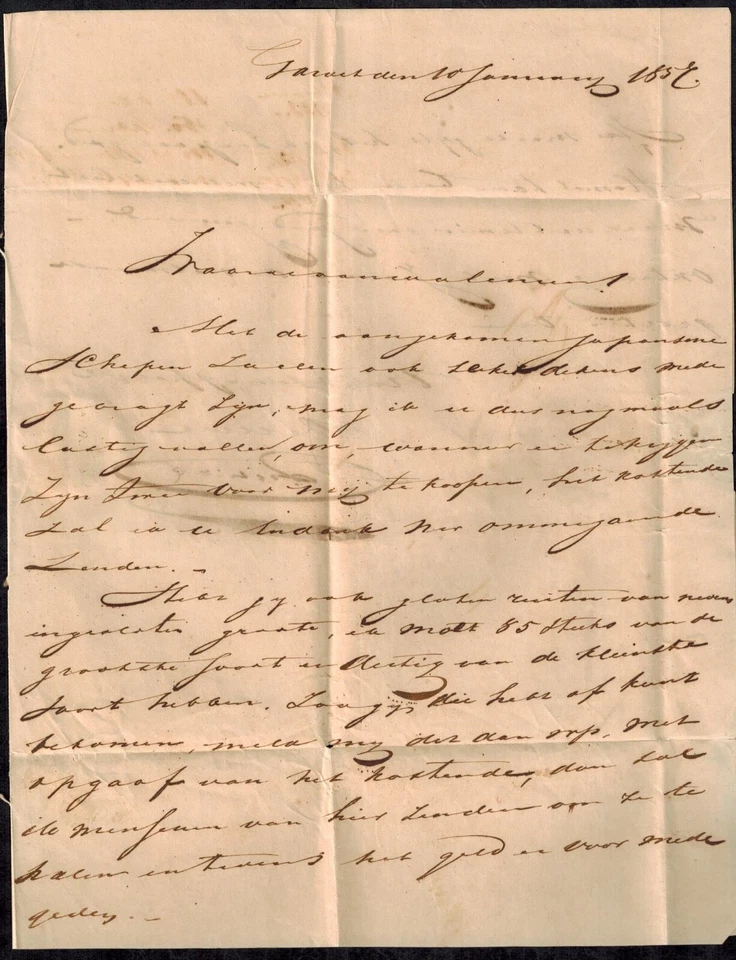 Garoet den 10 January 1857.
Met de aangekomen Japansche
Schepen zullen ook zeker dekens mede
gebragt zyn, mag ik u dus nogmaals
lastig vallen, om, wanneer er te krygen
zyn twee voor my te koopen, het kostende
zal ik u in dank per ommegaande
zenden. -
Hebt gy ook glazen ruiten van nevens
ingesloten groote, ik moet 85 stuks van de
grootste soort en dertig van de kleinste
soort hebben. Zoo gy die hebt of kunt
bekomen, meld my dit dan svp. met
opgaaf van het kostende, dan zal
ik menschen van hier zenden om ze te
halen en tevens het geld er voor mede
geven. -